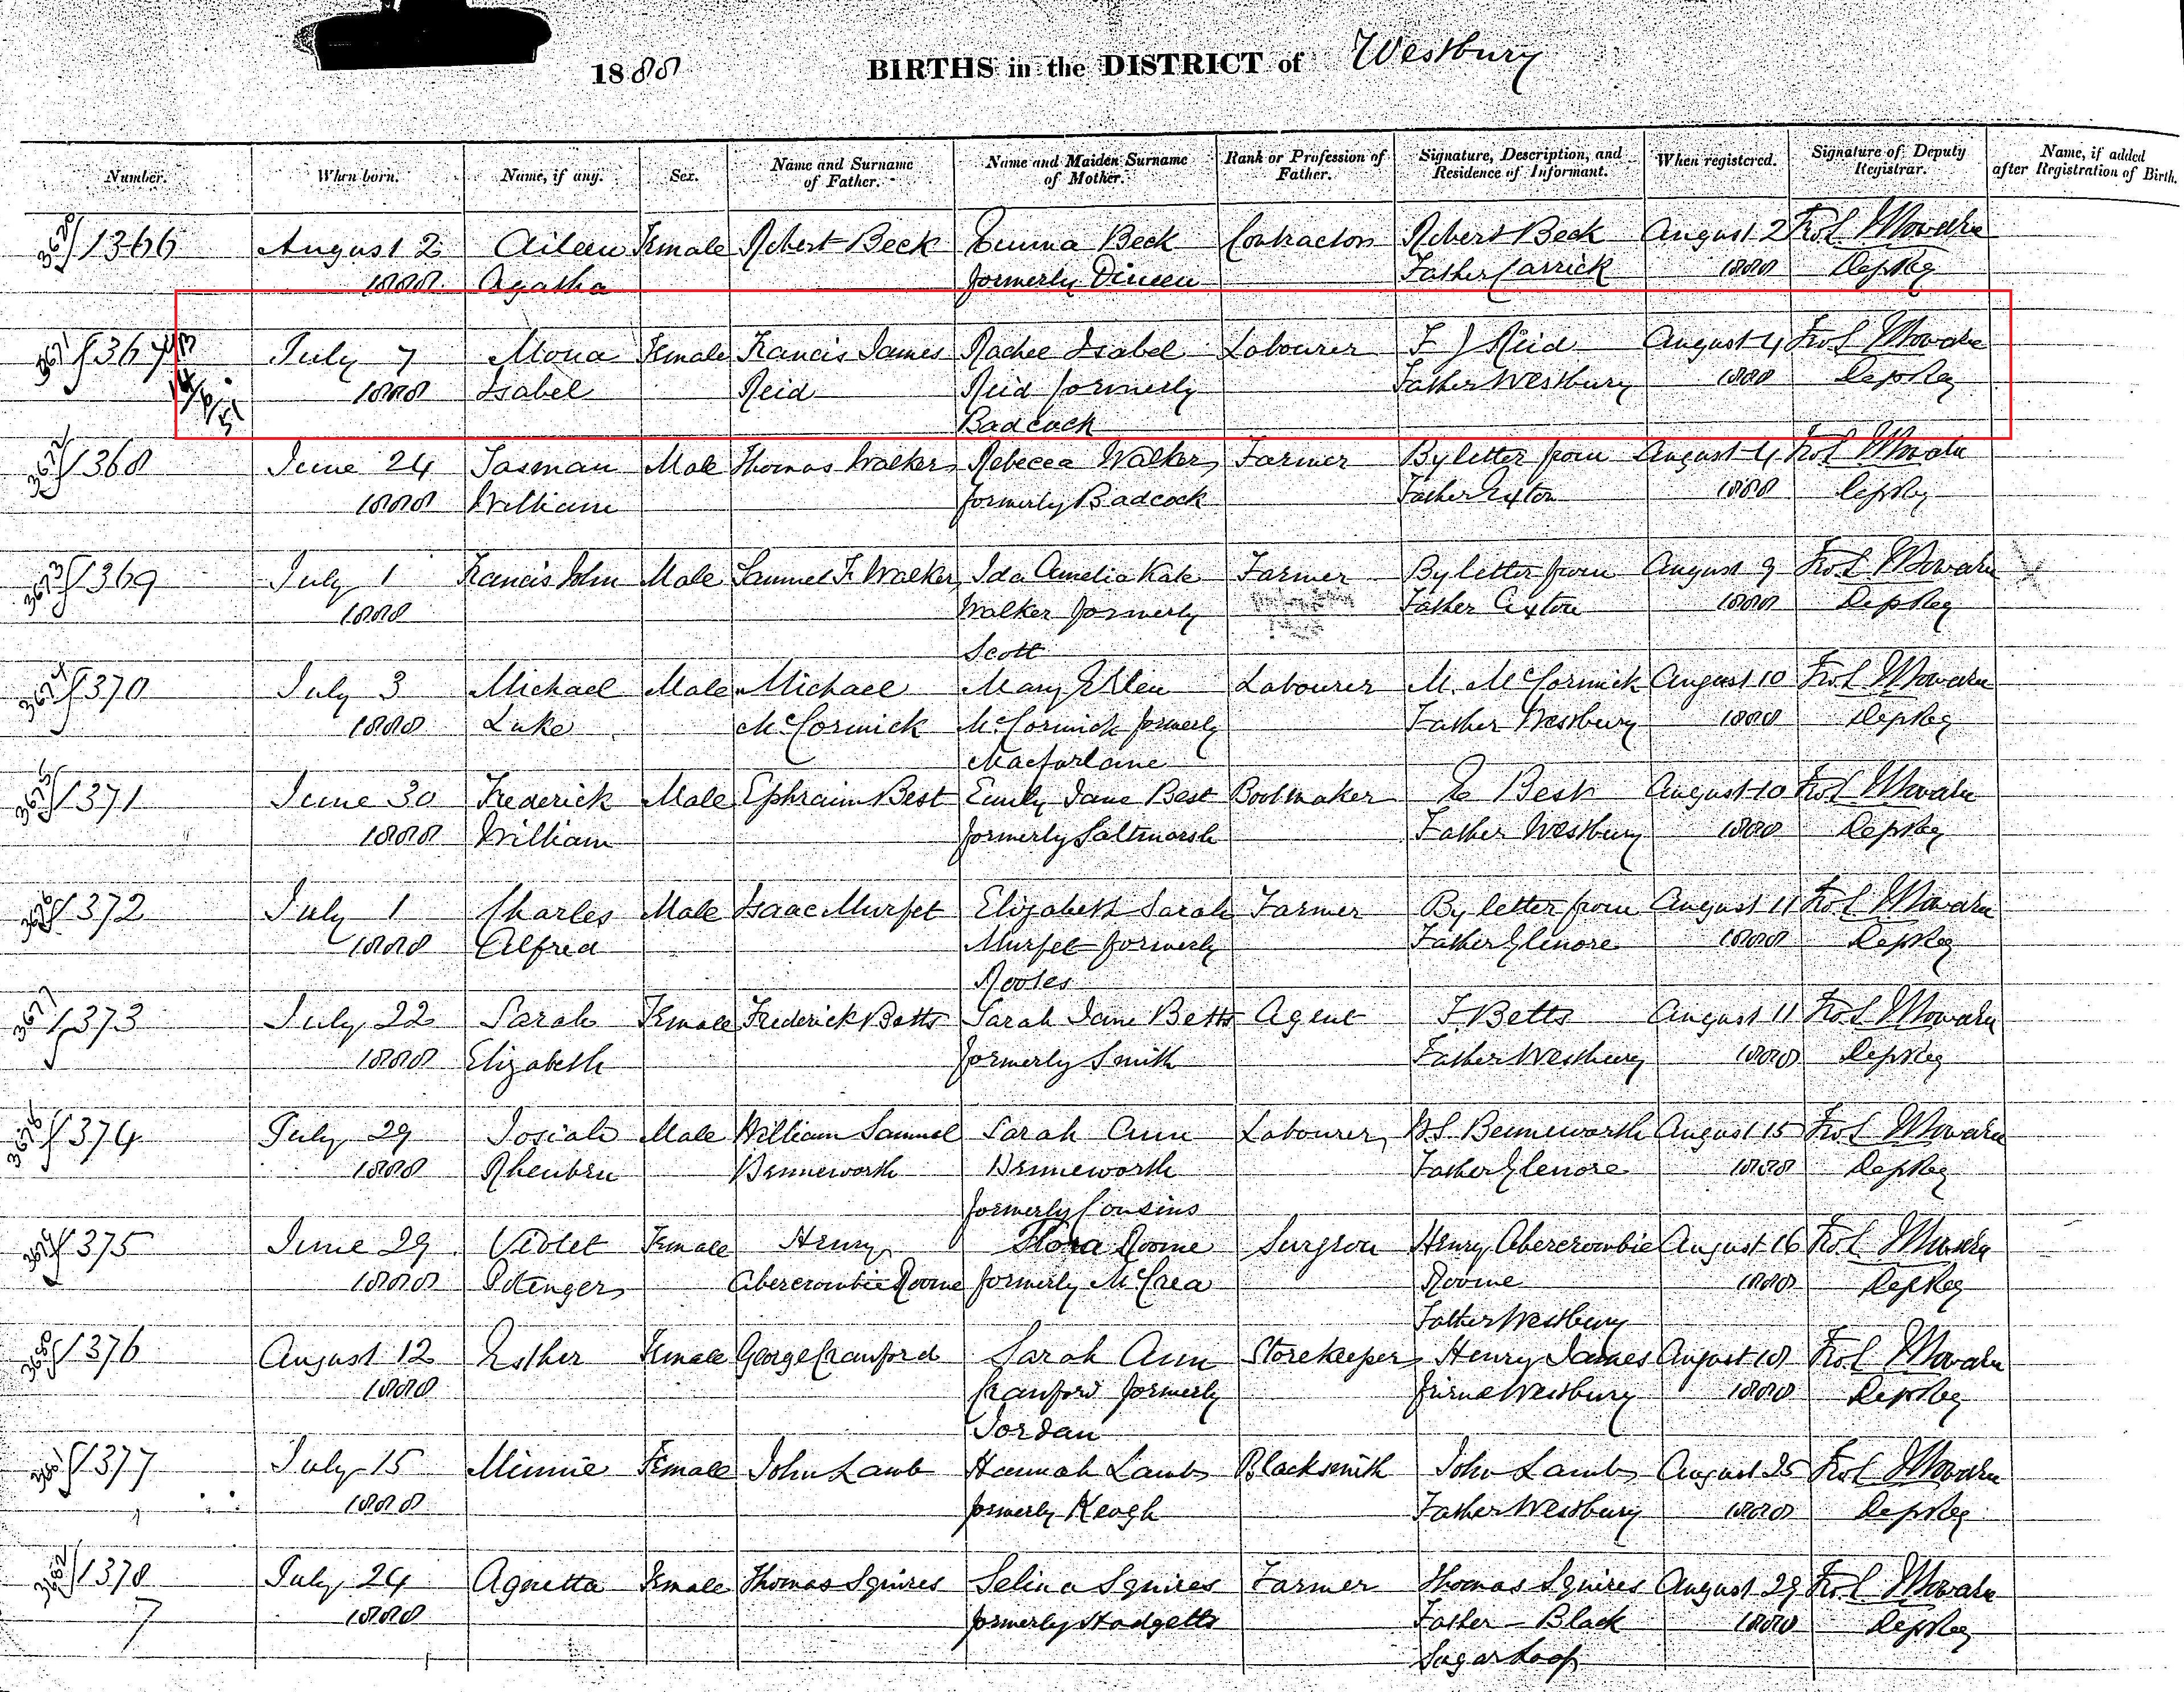 1888 BIRTHS in the DISTRICT of Westbury
Number. When born. Name, if any. Sex. Name and Surname of Father. Name and Maiden Surname of Mother. Rank or Profession of Father. Signature, Description, and Residence of Informant. When registered. Signature of Deputy Registrar. Name, if added after Registration of Birth.
3670 1366 August 2 Aileen Female Robert Beck Emma Beck Contractor Robert Beck August 2
1888 Agatha formerly Dineen Father Carrick 1888 Dep Reg
3671 1367 July 7 Mona Female Francis James Rachel Isabel Labourer F J Reid August 4
14/6/51 1888 Isabel Reid Reid formerly Father Westbury 1888 Dep Reg
Badcock
3672 1368 June 24 Tasman Male Thomas Walker Rebecca Walker Farmer By letter from August 4
1888 William formerly Badcock Father Exton 1888 Dep Reg
3673 1369 July 1 Francis John Male Samuel F. Walker Ida Amelia Kate Farmer By letter from August 9
1888 Walker formerly Father Exton 1888 Dep Reg
Scott
3674 1370 July 3 Michael Male Michael Mary Ellen Labourer M. McCormick August 10
1888 Luke McCormick McCormick formerly Father Westbury 1888 Dep Reg
Macfarlaine
3675 1371 June 30 Frederick Male Ephraim Best Emily Jane Best Bootmaker E Best August 10
1888 William formerly Saltmarsh Father Westbury 1888 Dep Reg
3676 1372 July 1 Charles Male Isaac Murfet Elizabeth Sarah Farmer By letter from August 11
1888 Alfred Murfet formerly Father Glenore 1888 Dep Reg
3677 1373 July 22 Sarah Female Frederick Betts Sarah Jane Betts Agent F. Betts August 11
1888 Elizabeth formerly Smith Father Westbury 1888 Dep Reg
3678 1374 July 29 Josiah Male William Samuel Sarah Ann Labourer W.S. Benneworth August 15
1888 Rheuben Benneworth Benneworth Father Glenore 1888 Dep Reg
formerly Cousins
3679 1375 June 29 Violet Female Henry Flora Roome Surgeon Henry Abercrombie August 16
1888 Abercrombie Roome formerly McCrea Roome 1888 Dep Reg
Father Westbury
3680 1376 August 12 Esther Female George Cranford Sarah Ann Storekeeper Henry James August 18
1888 Cranford formerly friend Westbury 1888 Dep Reg
Jordan
3681 1377 July 15 Minnie Female John Lamb Hannah Lamb Blacksmith John Lamb August 25
1888 formerly Keogh Father Westbury 1888 Dep Reg
3682 1378 July 24 Agnetta Female Thomas Squires Selina Squires Farmer Thomas Squires August 29
7 1888 formerly Hodgetts Father - Black 1888 Dep Reg
Sugar Loaf